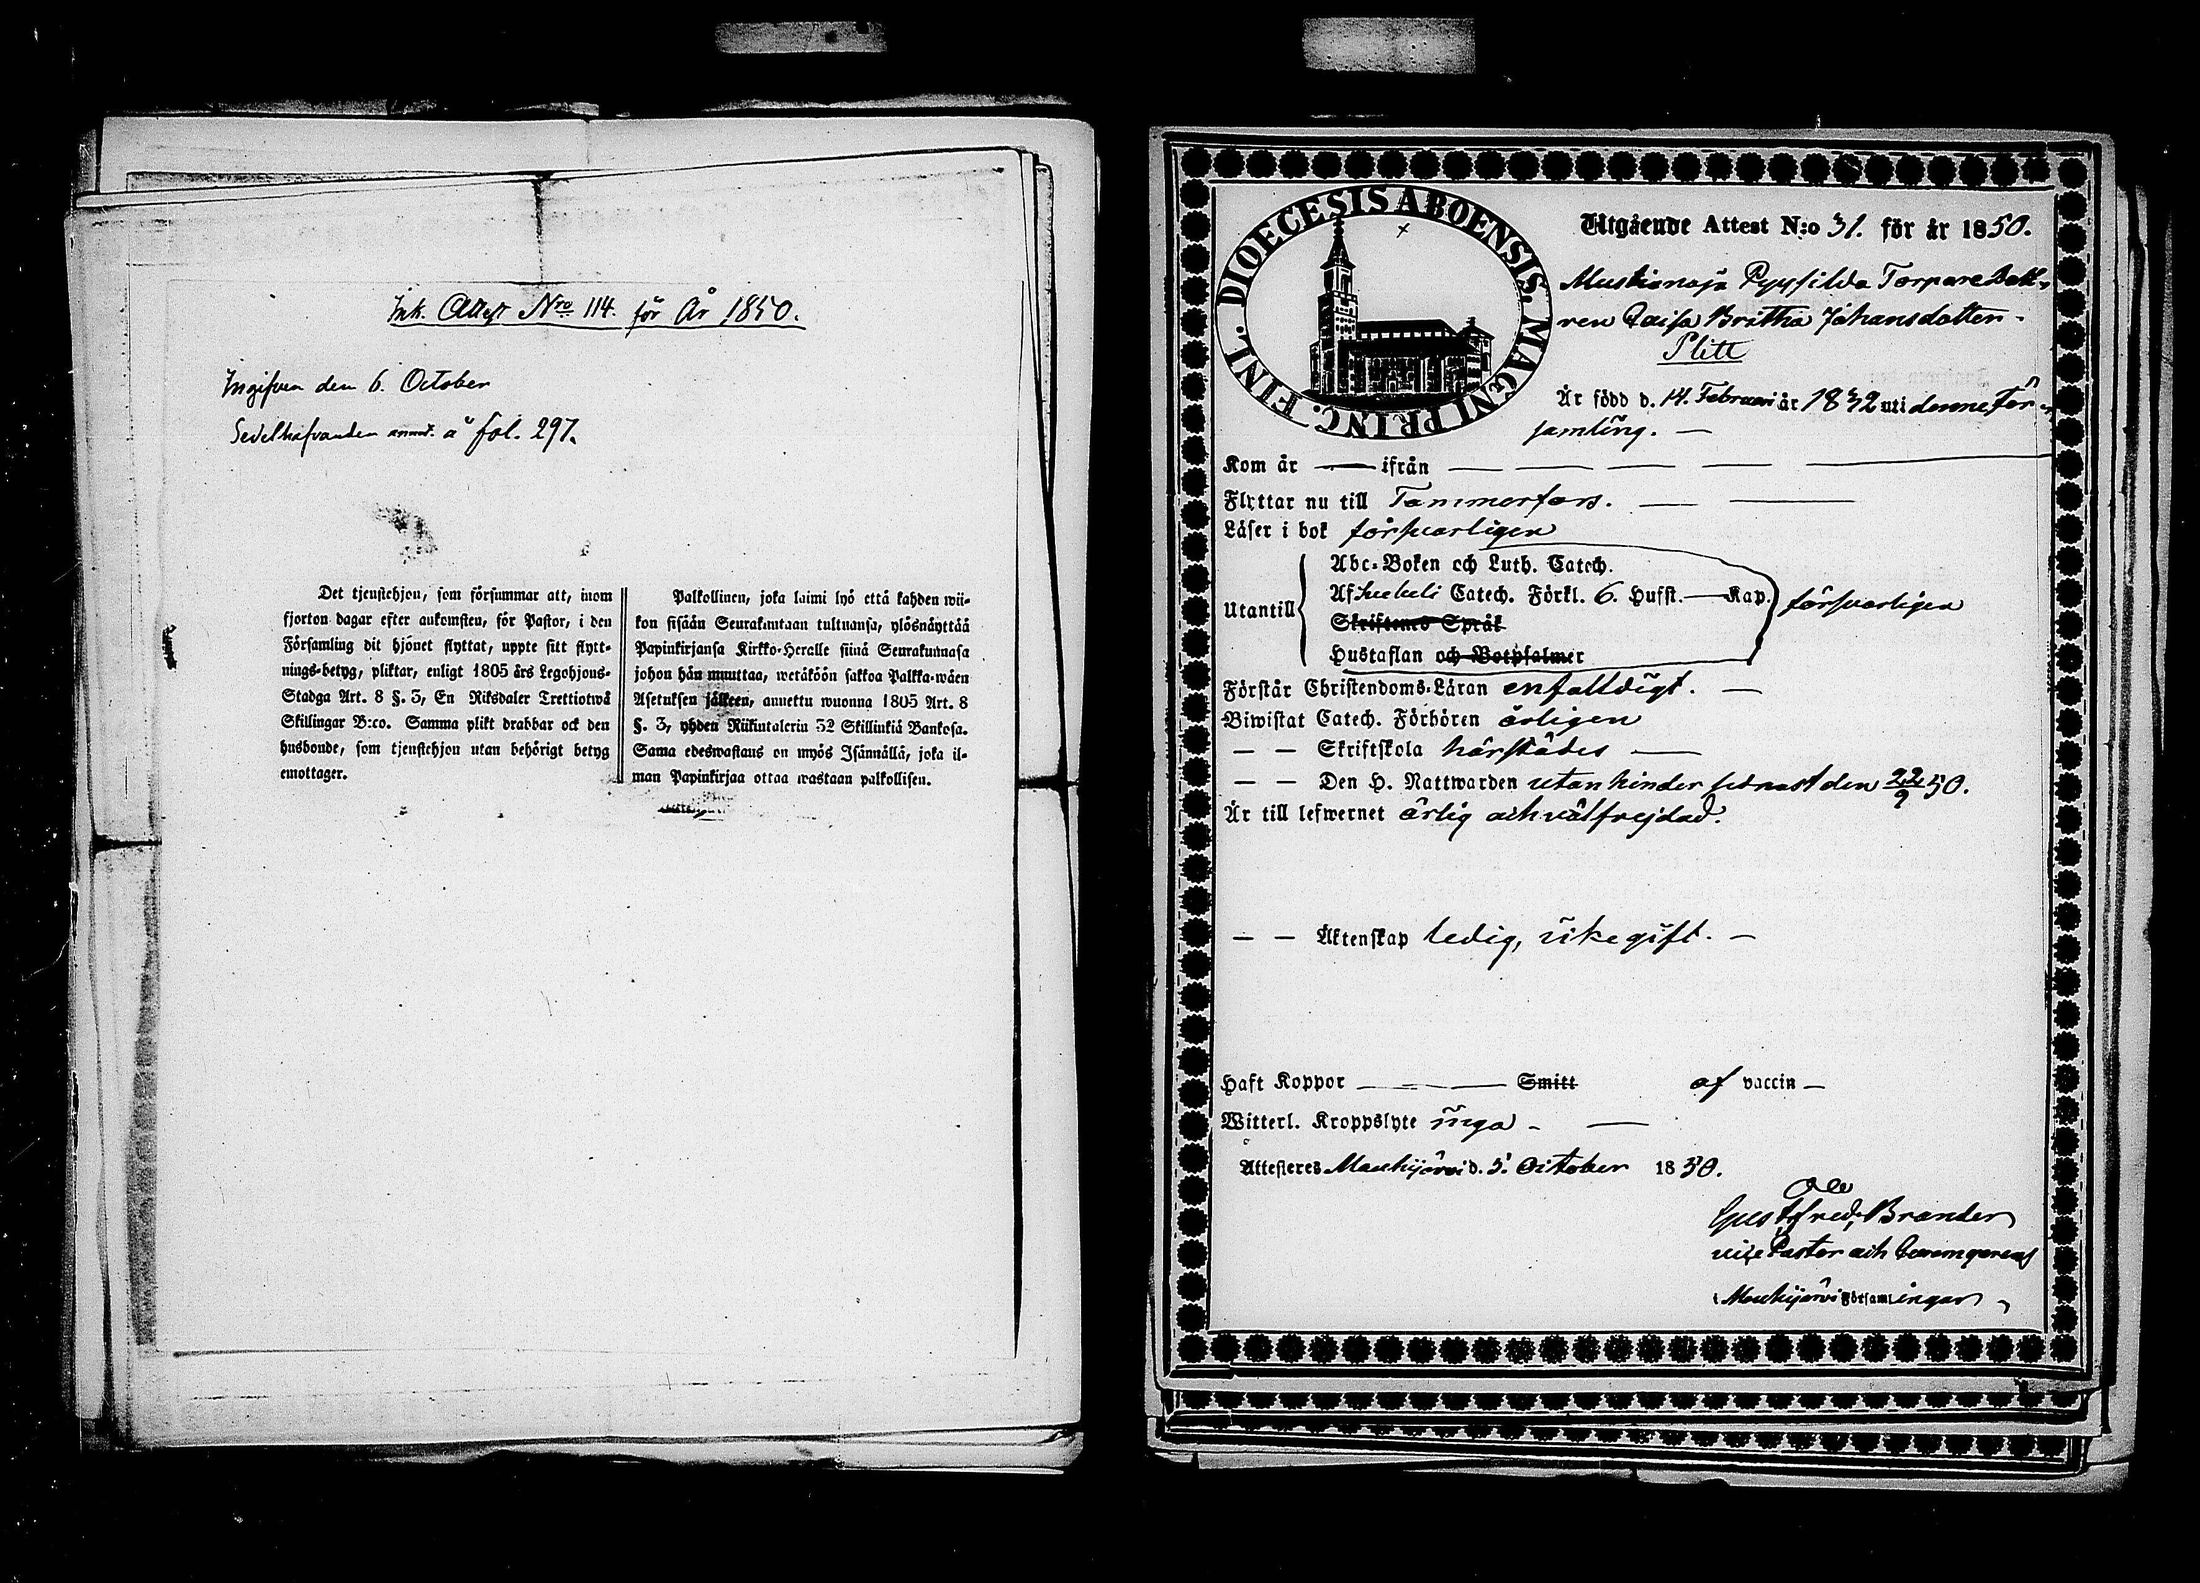 Ink. Attest Nro 114. för År 1850.
Ingifven den 6. October
Sedelhafvanden annot. å fol. 297.
Det tjenstehjon, som försummar att, inom
fjorton dagar efter ankomsten, för Pastor, i den
Församling dit hjonet flyttat, uppte sitt flytt-
nings-betyg, pliktar, enligt 1805 års Legohjons-
Stadga Art. 8 §. 3, En Riksdaler Trettiotwå
Skillingar B:co. Samma plikt drabbar ock den
husbonde, som tjenstehjon utan behörigt betyg
emottager.
Palkollinen, joka laimi lyö että kahden wii-
kon sisään Seurakuntaan tultuansa, ylösnäyttää
Papinkirjansa Kirkko-Heralle siinä Seurakunnasa
johon hän muuttaa, wetäköön sakkoa Palkka-wäen
Asetuksen jälkeen, annettu wuonna 1805 Art. 8
§. 3, yhden Riikintalerin 32 Skillinkiä Bankosa.
Sama edeswastaus on myös Isännällä, joka il-
man Papinkirjaa ottaa wastaan palkollisen.
DIOECESIS ABOENSIS. MAGNI PRINC. FINL.
Utgående Attest N:o 31. för år 1850.
Mustianoja Pyysilda Torpare Dott-
ren Caisa Britha Johansdotter
Plitt
Är född d. 14. Februari år 1832 uti denne För-
samling. —
Kom år — ifrån — — — — —
Flyttar nu till Tammerfors. — —
Läser i bok försvarligen
Utantill
Abc-Boken och Luth. Catech.
Af Svebeli Catech. Förkl. 6. Hufst. — Kap.
Skriftenes Språk
Hustaflan och Botpsalmer
försvarligen
Förstår Christendoms-Läran enfaldigt. —
Biwistat Catech. Förhören årligen
— — Skriftskola härstädes —
— — Den H. Nattwarden utan hinder sednast den 22/9 50.
Är till lefwernet ärlig och välfrejdad.
— — Äktenskap ledig, icke gift. —
Haft Koppor — — — Smitt af vaccin —
Witterl. Kroppslyte inga - —
Attesteres Mouhijärvi d. 5. October 1850.
Gust. Fred. Brander
vice Pastor och
i Mouhijärvi Församlingar